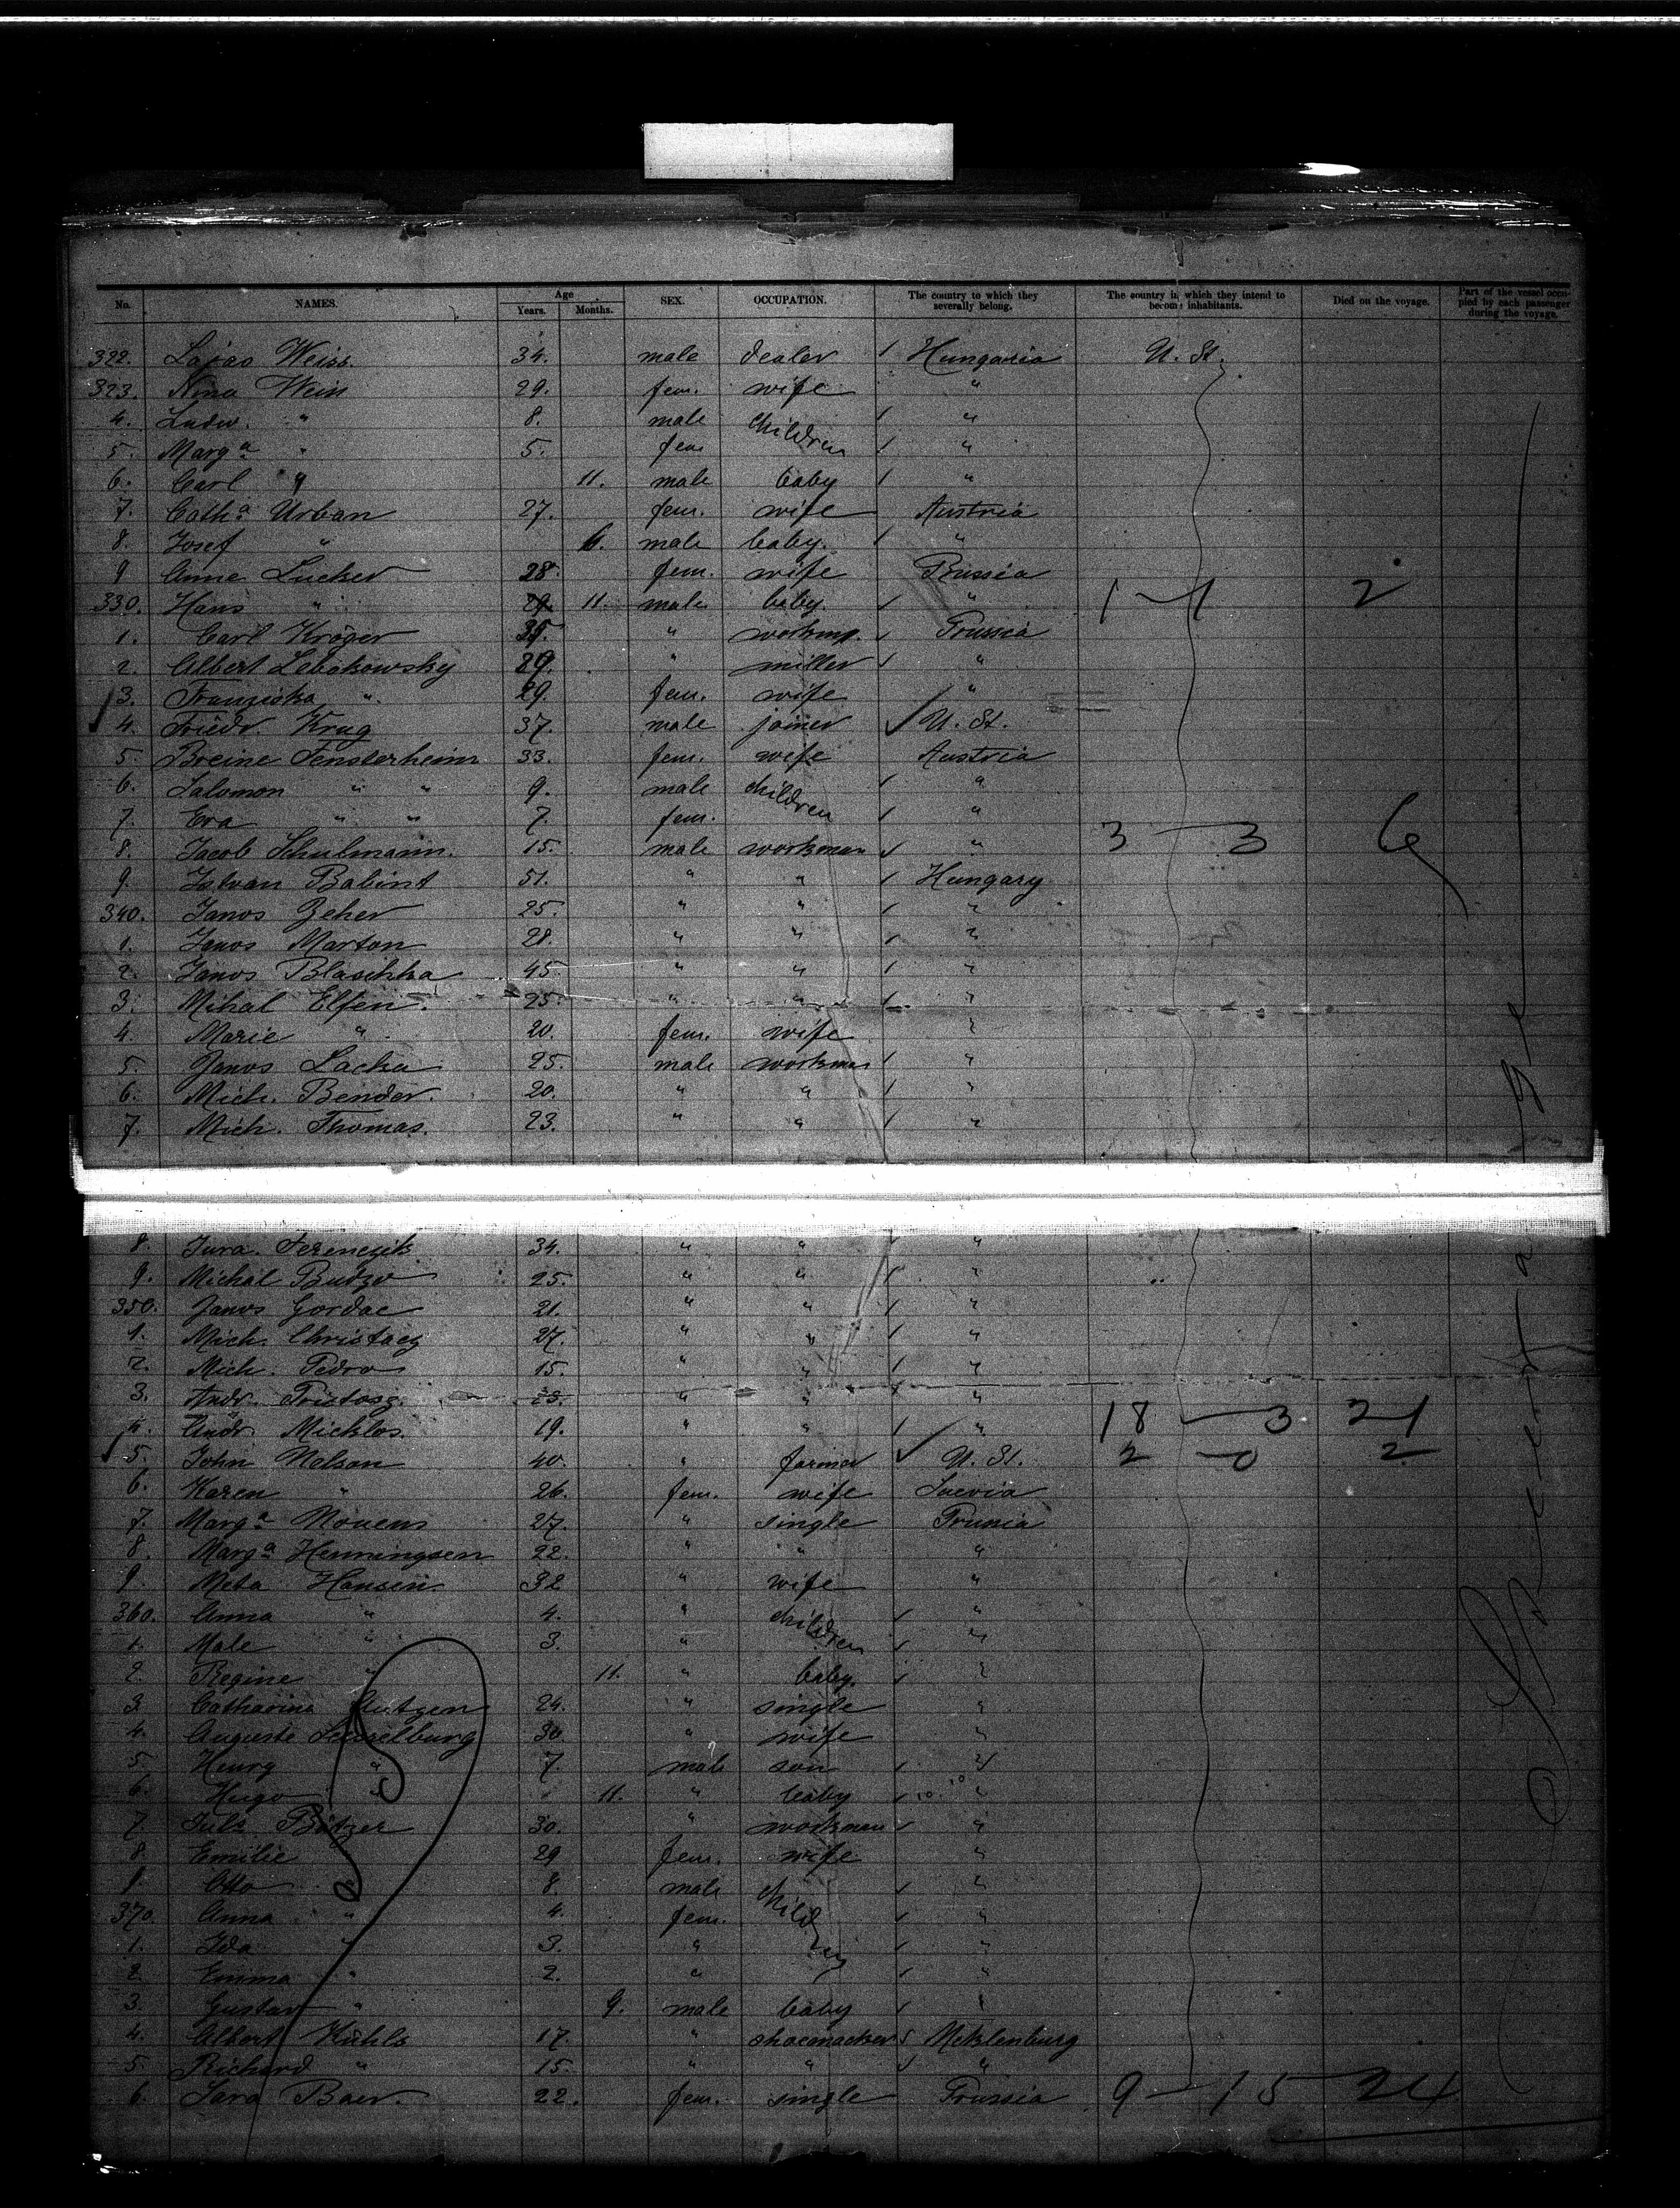 No. NAMES. Age Years. Months. SEX. OCCUPATION. The country to which they severally belong. The country in which they intend to become inhabitants. Died on the voyage. Part of the vessel occupied by each passenger during the voyage.
322. Lajas Weiss. 34. male dealer / Hungaria U. St.
323. Nina Weiss 29. fem. wife "
4. Ludw. " 8. male children / "
5. Marga " 5. fem / "
6. Carl " 11. male baby / "
7. Catha Urban 27. fem. wife Austria
8. Josef " 6. male baby. / "
9 Anne Lucker 28. fem. wife Russia
330. Hans " 11. male baby / " 1 — 1 2
1. Carl Kröger 35. " workm. / Prussia
2. Albert Lebakowsky 29. " miller / "
3. Franziska " 29. fem. wife "
4. Friedr. Krug 37. male joiner ✓ U. St.
5. Breine Fensterheim 33. fem. wife Austria
6. Salomon " " 9. male children / "
7. Eva " " 7. fem. / "
8. Jacob Schulmann. 15. male workman / " 3 — 3 6
9. Istvan Babint 51. " " / Hungary
340. Janos Zeher 25. " " / "
1. Janos Marton 28. " " / "
2. Janos Blaschka 45. " " / "
3. Mihal Elfen. 25. " " / "
4. Marie " 20. fem. wife "
5. Janos Lacka 25. male workman / "
6. Mich. Bender. 20. " " / "
7. Mich. Thomas. 23. " " / "
8. Jura. Ferenczik 34. " " "
9. Michal Budzo 25. " " / "
350. Janos Gordac 21. " " / "
1. Mich. 27. " " / "
2. Mich. Pedro 15. " " / "
3. Andr. 23. " " / "
4. Andr. Micklos. 19. " " / " 18 — 3 21
5. John Nelson 40. " farmer ✓ U. St. 2 — 0 2
6. Karen " 26. fem. wife Suevia
7. Marga Nouens 27. " single Prussia
8. Marga Henningsen 22. " " "
9. Meta Hansen 32 " wife "
360. Anna " 4. " children / "
1. Male " 3. " / "
2. Regine " 11. " baby. / "
3. Catharina 24. " single "
4. Auguste 30. " wife "
5. Henry " 7. male son / "
6. Hugo " 11. " baby / "
7. Julz 30. " workman / "
8. Emilie 29 fem. wife "
9. Otto " 8. male children / "
370. Anna " 4. fem. / "
1. Ida " 3. " / "
2. Emma " 2. " / "
3. Gustav " 9. male baby / "
4. Albert Kühls 17. " shoemacker / Meklenburg
5. Richard " 15. " " / "
6. Sara Baer. 22. fem. single Prussia 9 — 15 24